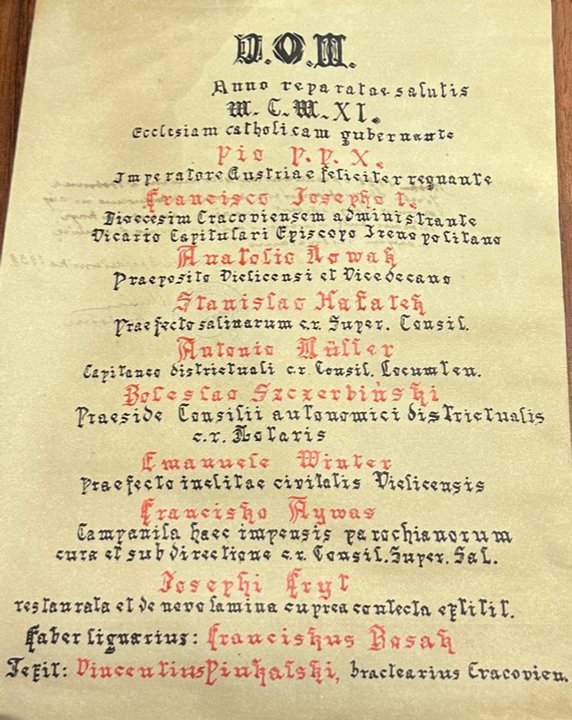 D.O.M.
Anno reparatae salutis
M.C.M.XI.
Ecclesiam catholicam gubernante
Pio P.P.X.
Imperatore Austriae feliciter regnante
Francisco Josepho I.
Dioecesim Cracoviensem administrante
Vicario Capitulari Episcopo Irenopolitano
Anatolio Nowak
Praeposito Vielicensi et Vicedecano
Stanislao Hałatek
Praefecto salinarum c.r. Super. Consil.
Antonio Müller
Capitaneo districtuali c.r. Consil. Locumten.
Boleslao Szczerbiński
Praeside Consilii autonomici districtualis
c.r. Notaris
Emanuele Winter
Praefecto inclitae civitatis Vielicensis
Francisko Aywas
Campanila haec impensis parochianorum
cura et sub directione c.r. Consil. Super. Sal.
Josephi Kryl
restaurata et de novo lamina cuprea contecta extitit.
Faber lignarius: Franciskus Bosak
Texit: Vincentius, bractearius Cracovien.